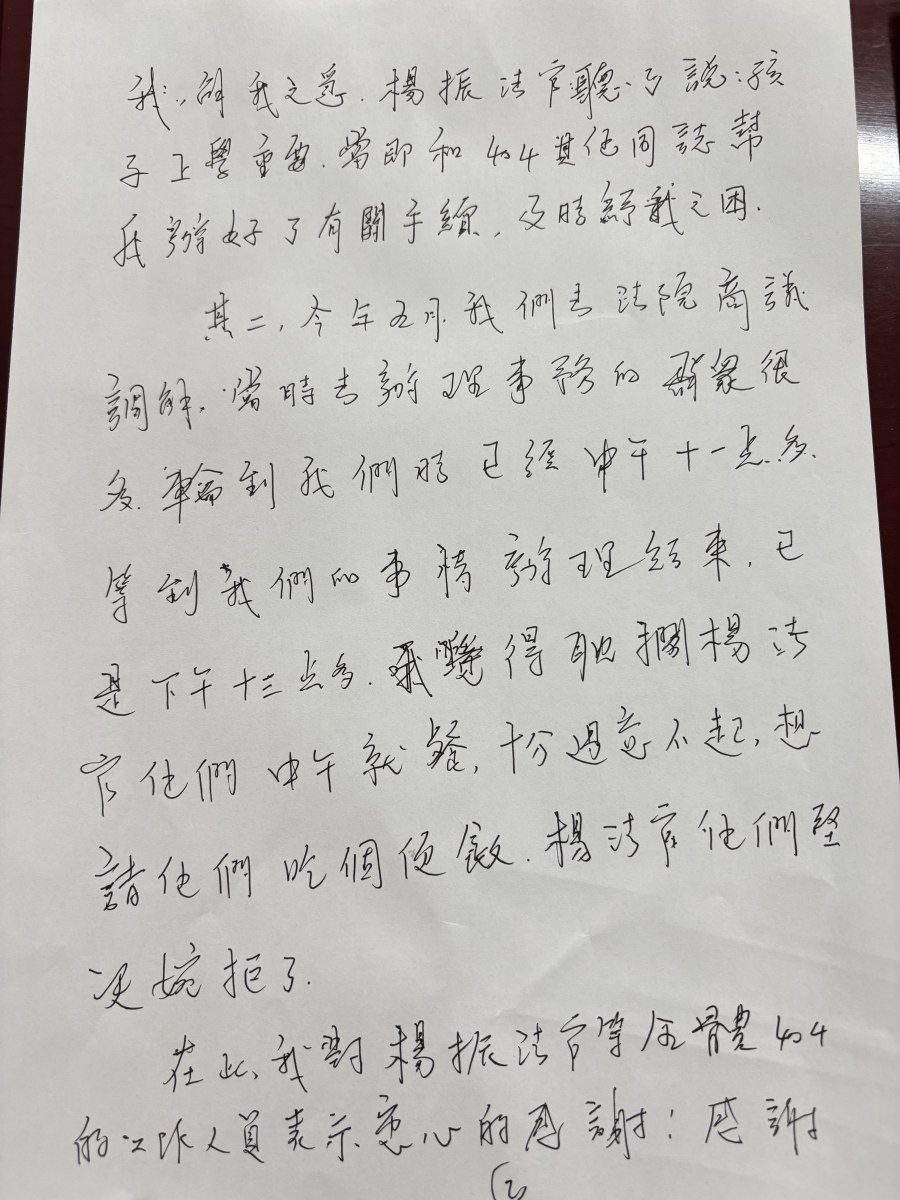 我,解我之急.楊振法官聽了說:孩
子上學重要.當即和404其他同誌幫
我辦好了有關手續,及時紓我之困.
其二,今年五月,我們去法院商議
調解,當時去辦理事務的群眾很
多.輪到我們時已經中午十一点多.
等到我們的事情辦理結束,已
是下午十三点多.我覺得耽擱楊法
官他們中午就餐,十分過意不起,想
請他們吃個便飯.楊法官他們堅
決婉拒了.
在此,我對楊振法官等全體404
的工作人員表示衷心的感謝!感謝
(2